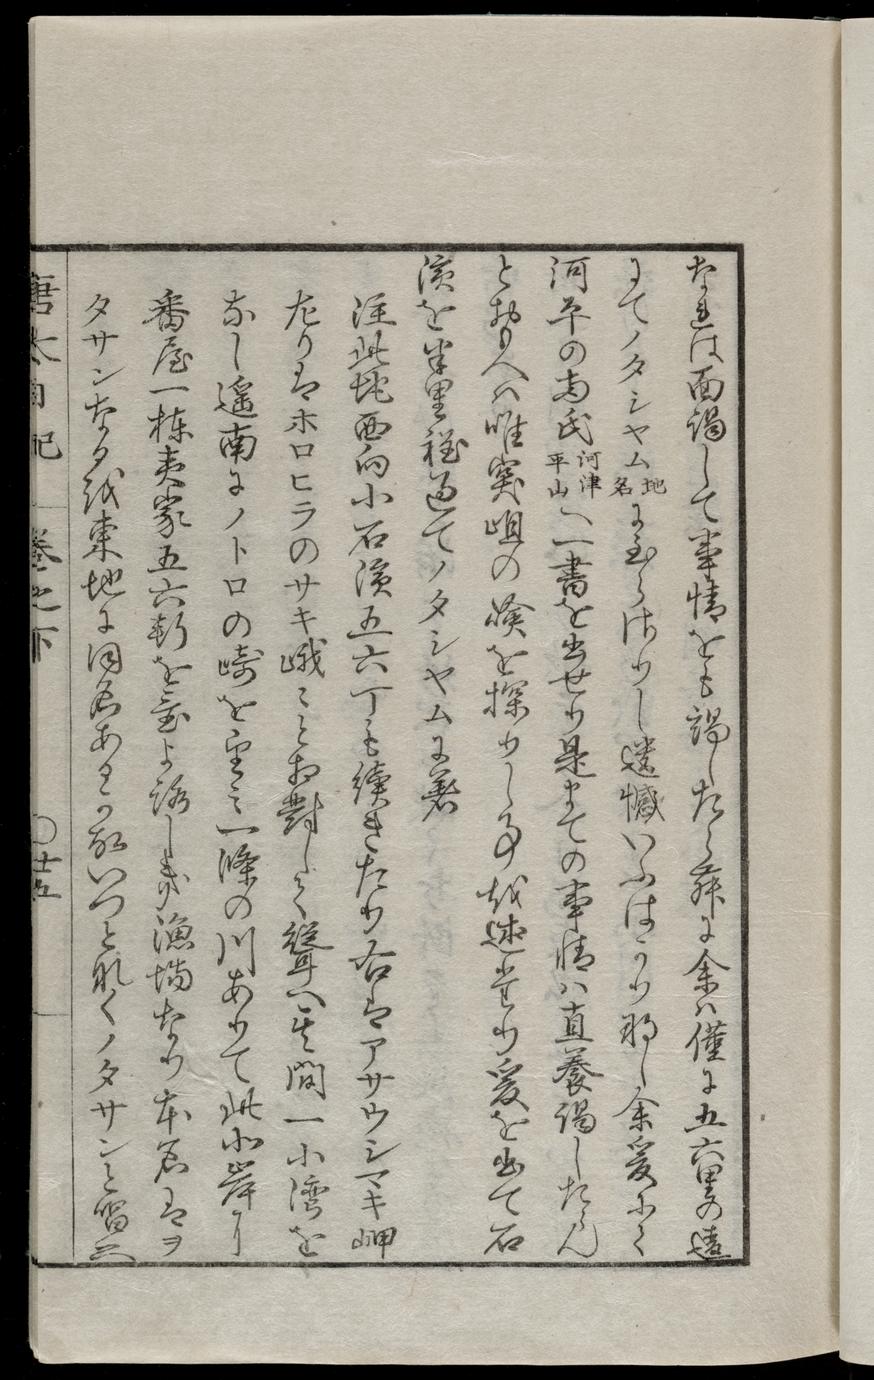 なれは面謁して事情をも謁したらん舜に余ハ僅に五六里の遠
にてノタシヤム地名に至らさりし遺憾いふはかり那し余爰にて
河平の両氏河津平山へ一書を出せり是まての事情ハ直養謁したらん
とおもへハ唯実岨の険を探りし事越述尓り爰を出て石
濱を半里程過てノタシヤムに着
注此地西向小石濱五六丁も続きたり右はアサウシマキ岬
左りはホロヒラのサキ峨ことお對して聳へ其間一小湾を
なし遥南にノトロの崎を望ミ一條の川ありて此北岸に
番屋一棟夷家五六軒を置よ路しき漁場なり本名はヲ
タサンなる越東地に同名ある故いつと那くノタサンと唱云
唐太日記 巻之下 〇廿五